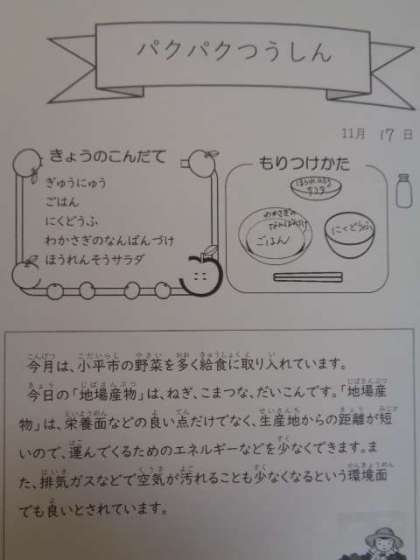 パクパクつうしん
11月 17日
きょうのこんだて
ぎゅうにゅう
ごはん
にくどうふ
わかさぎのなんばんづけ
ほうれんそうサラダ
もりつけかた
ほうれんそう
サラダ
わかさぎの
なんばんづけ
ごはん
にくどうふ
今月は、小平市の野菜を多く給食に取り入れています。
今日の「地場産物」は、ねぎ、こまつな、だいこんです。「地場産
物」は、栄養面などの良い点だけでなく、生産地からの距離が短
いので、運んでくるためのエネルギーなどを少なくできます。ま
た、排気ガスなどで空気が汚れることも少なくなるという環境面
でも良いとされています。